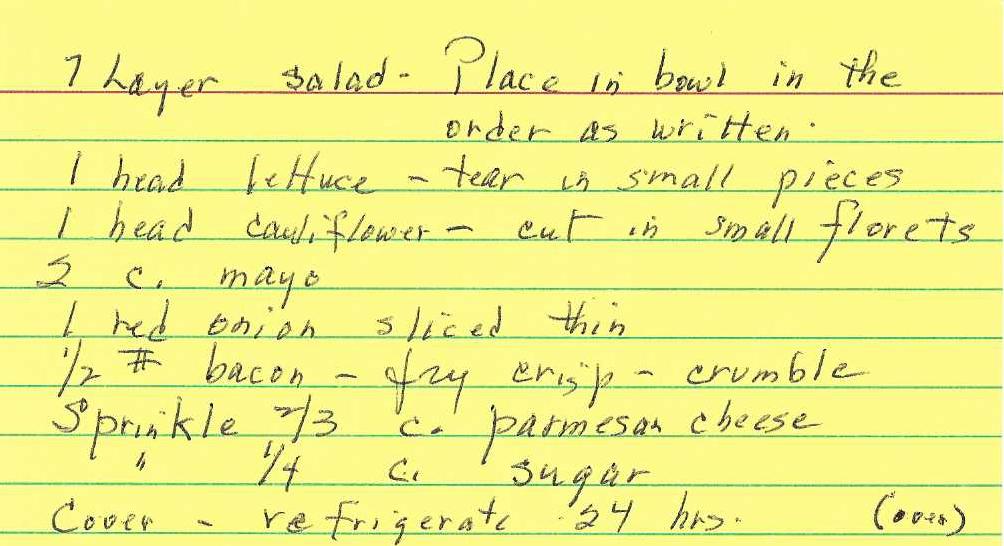 7 Layer salad - Place in bowl in the
order as written.
1 head lettuce - tear in small pieces
1 head cauliflower - cut in small florets
2 c. mayo
1 red onion sliced thin
1/2 # bacon - fry crisp - crumble
Sprinkle 2/3 c. parmesan cheese
" 1/4 c. sugar
Cover - refrigerate 24 hrs. (over)